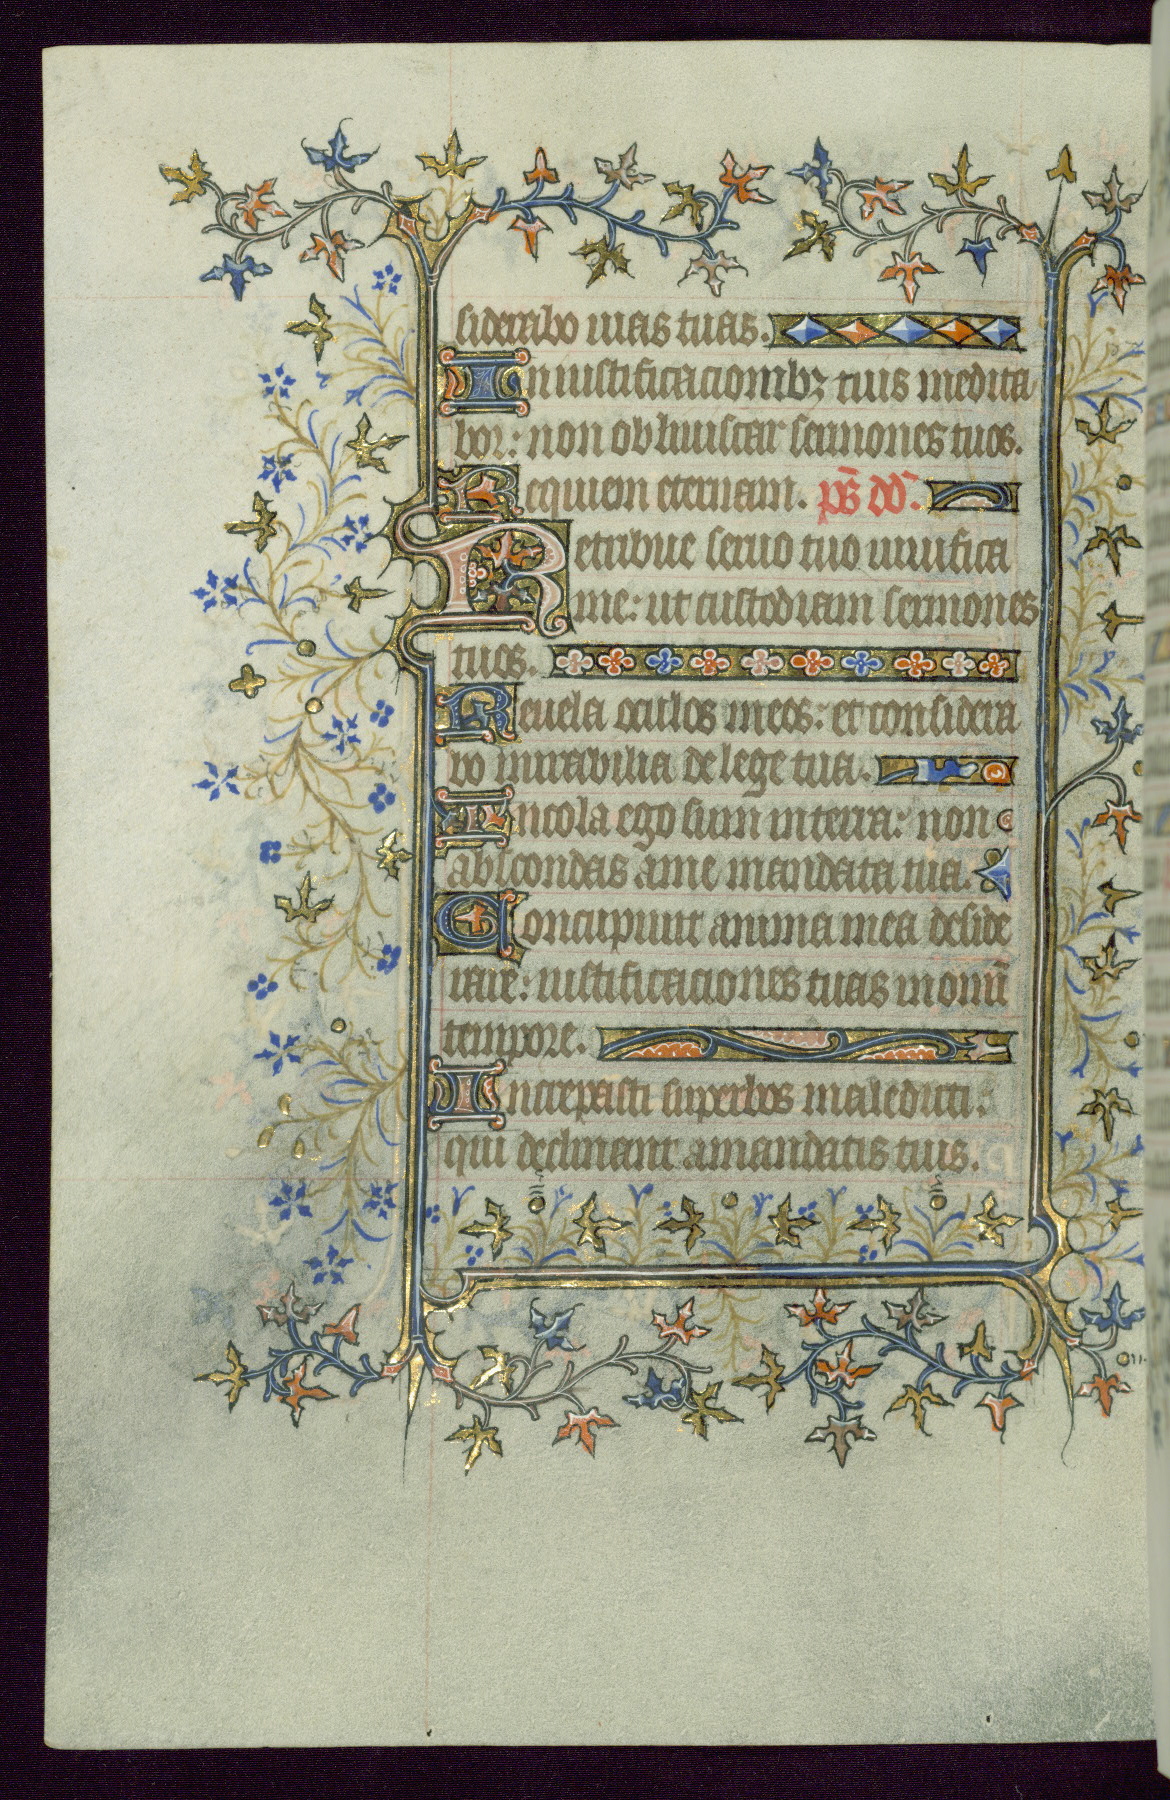 siderabo uias tuas.
In iustificacionibꝫ tuis medita
bor: non obliuiscar sermones tuos.
Requiem eternam. p̄s dd̄.
Retribue seruo tuo uiuifica
me: ut custodiam sermones
tuos.
Reuela oculos meos: et considera
bo mirabilia de lege tua.
Incola ego sum in terra: non
abscondas a me mandata tua.
Concupiuit anima mea deside
rare: iustificaciones tuas in omni
tempore.
Increpasti superbos maledicti.
qui declinant a mandatis tuis.